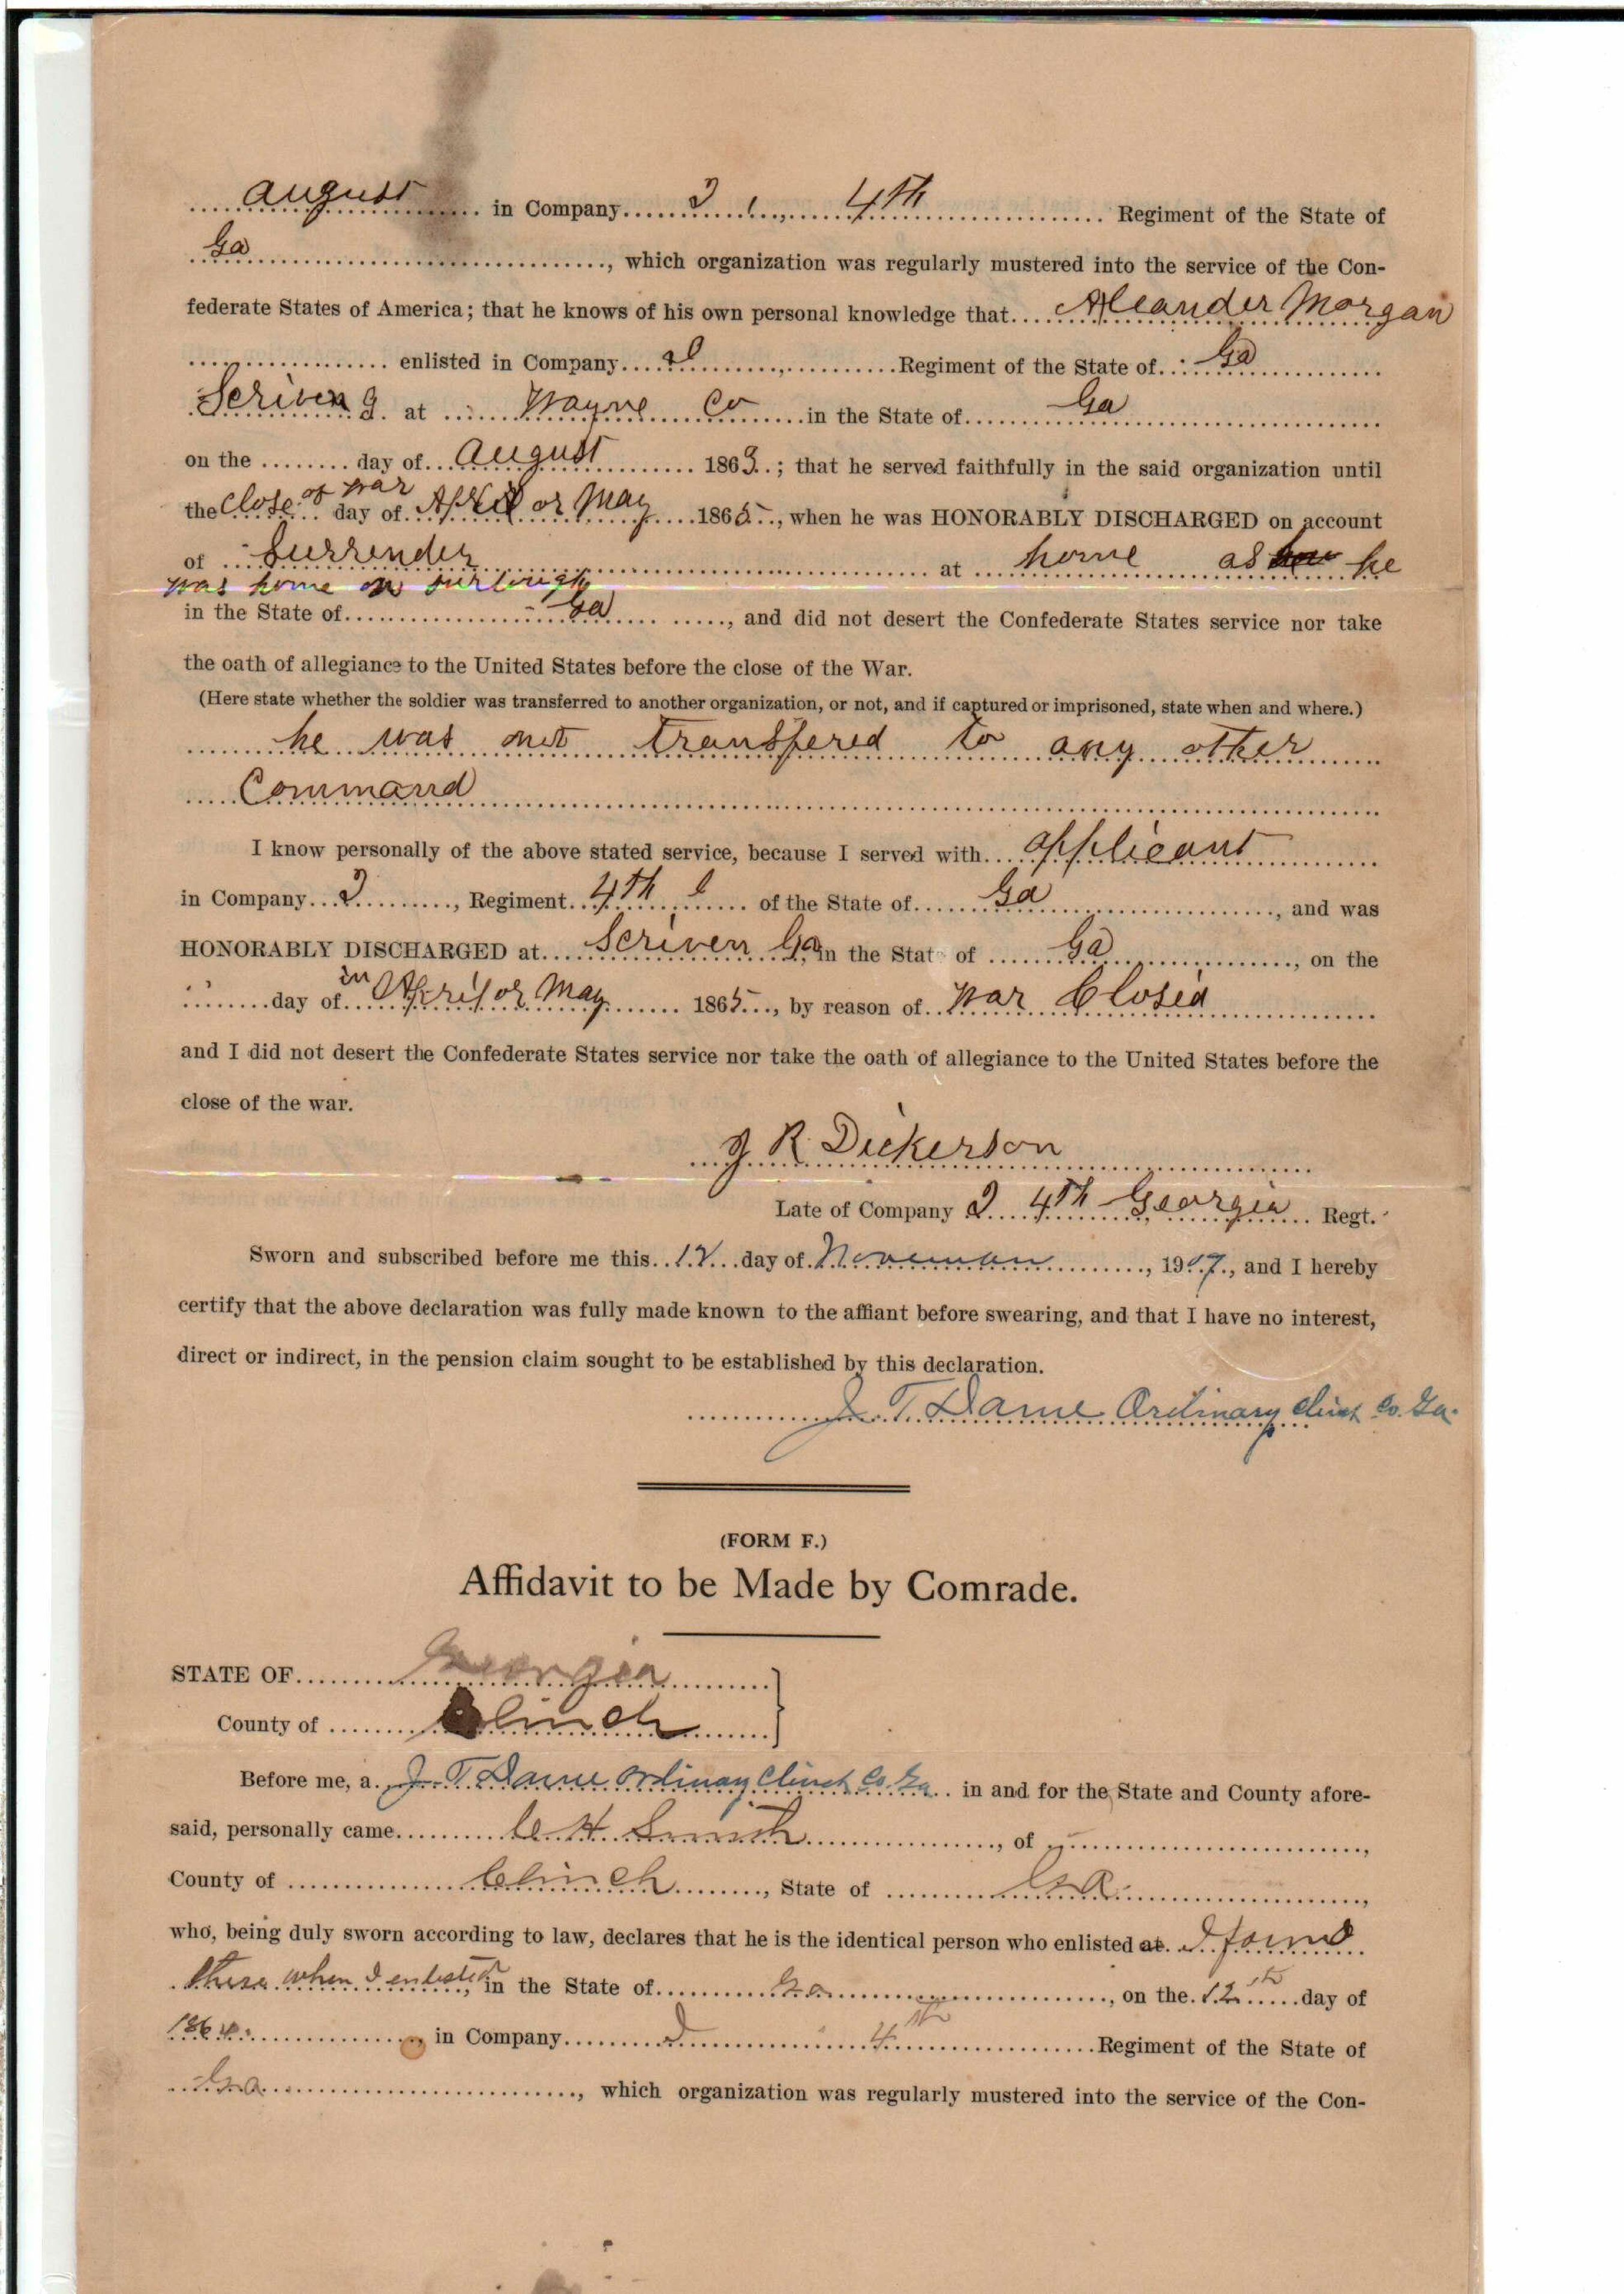 August in Company I, 4th Regiment of the State of
Ga, which organization was regularly mustered into the service of the Con-
federate States of America; that he knows of his own personal knowledge that Aleander Morgan
enlisted in Company I, Regiment of the State of Ga
Scriven G. at Wayne Co in the State of Ga
on the day of August 1863; that he served faithfully in the said organization until
of war
the close day of April or May 1865, when he was HONORABLY DISCHARGED on account
of Surrender at home as he
was home on furlough
in the State of Ga, and did not desert the Confederate States service nor take
the oath of allegiance to the United States before the close of the War.
(Here state whether the soldier was transferred to another organization, or not, and if captured or imprisoned, state when and where.)
he was not transfered to any other
Command
I know personally of the above stated service, because I served with applicant
in Company I, Regiment 4th of the State of Ga, and was
HONORABLY DISCHARGED at Scriven Ga in the State of Ga, on the
day of in April or May 1865, by reason of war Closed
and I did not desert the Confederate States service nor take the oath of allegiance to the United States before the
close of the war.
J R Dickerson
Late of Company I 4th Georgia Regt.
Sworn and subscribed before me this 12 day of, 1907, and I hereby
certify that the above declaration was fully made known to the affiant before swearing, and that I have no interest,
direct or indirect, in the pension claim sought to be established by this declaration.
J. T. Dame Ordinary Clinch Co. Ga.
(FORM F.)
Affidavit to be Made by Comrade.
STATE OF Georgia
County of Clinch
Before me, a J. T. Dame Ordinary Clinch Co. Ga. in and for the State and County afore-
said, personally came Smith, of
County of Clinch, State of Ga.
who, being duly sworn according to law, declares that he is the identical person who enlisted at I found
these when I enlisted, in the State of Ga, on the 12th day of
1864, in Company I 4th Regiment of the State of
Ga, which organization was regularly mustered into the service of the Con-